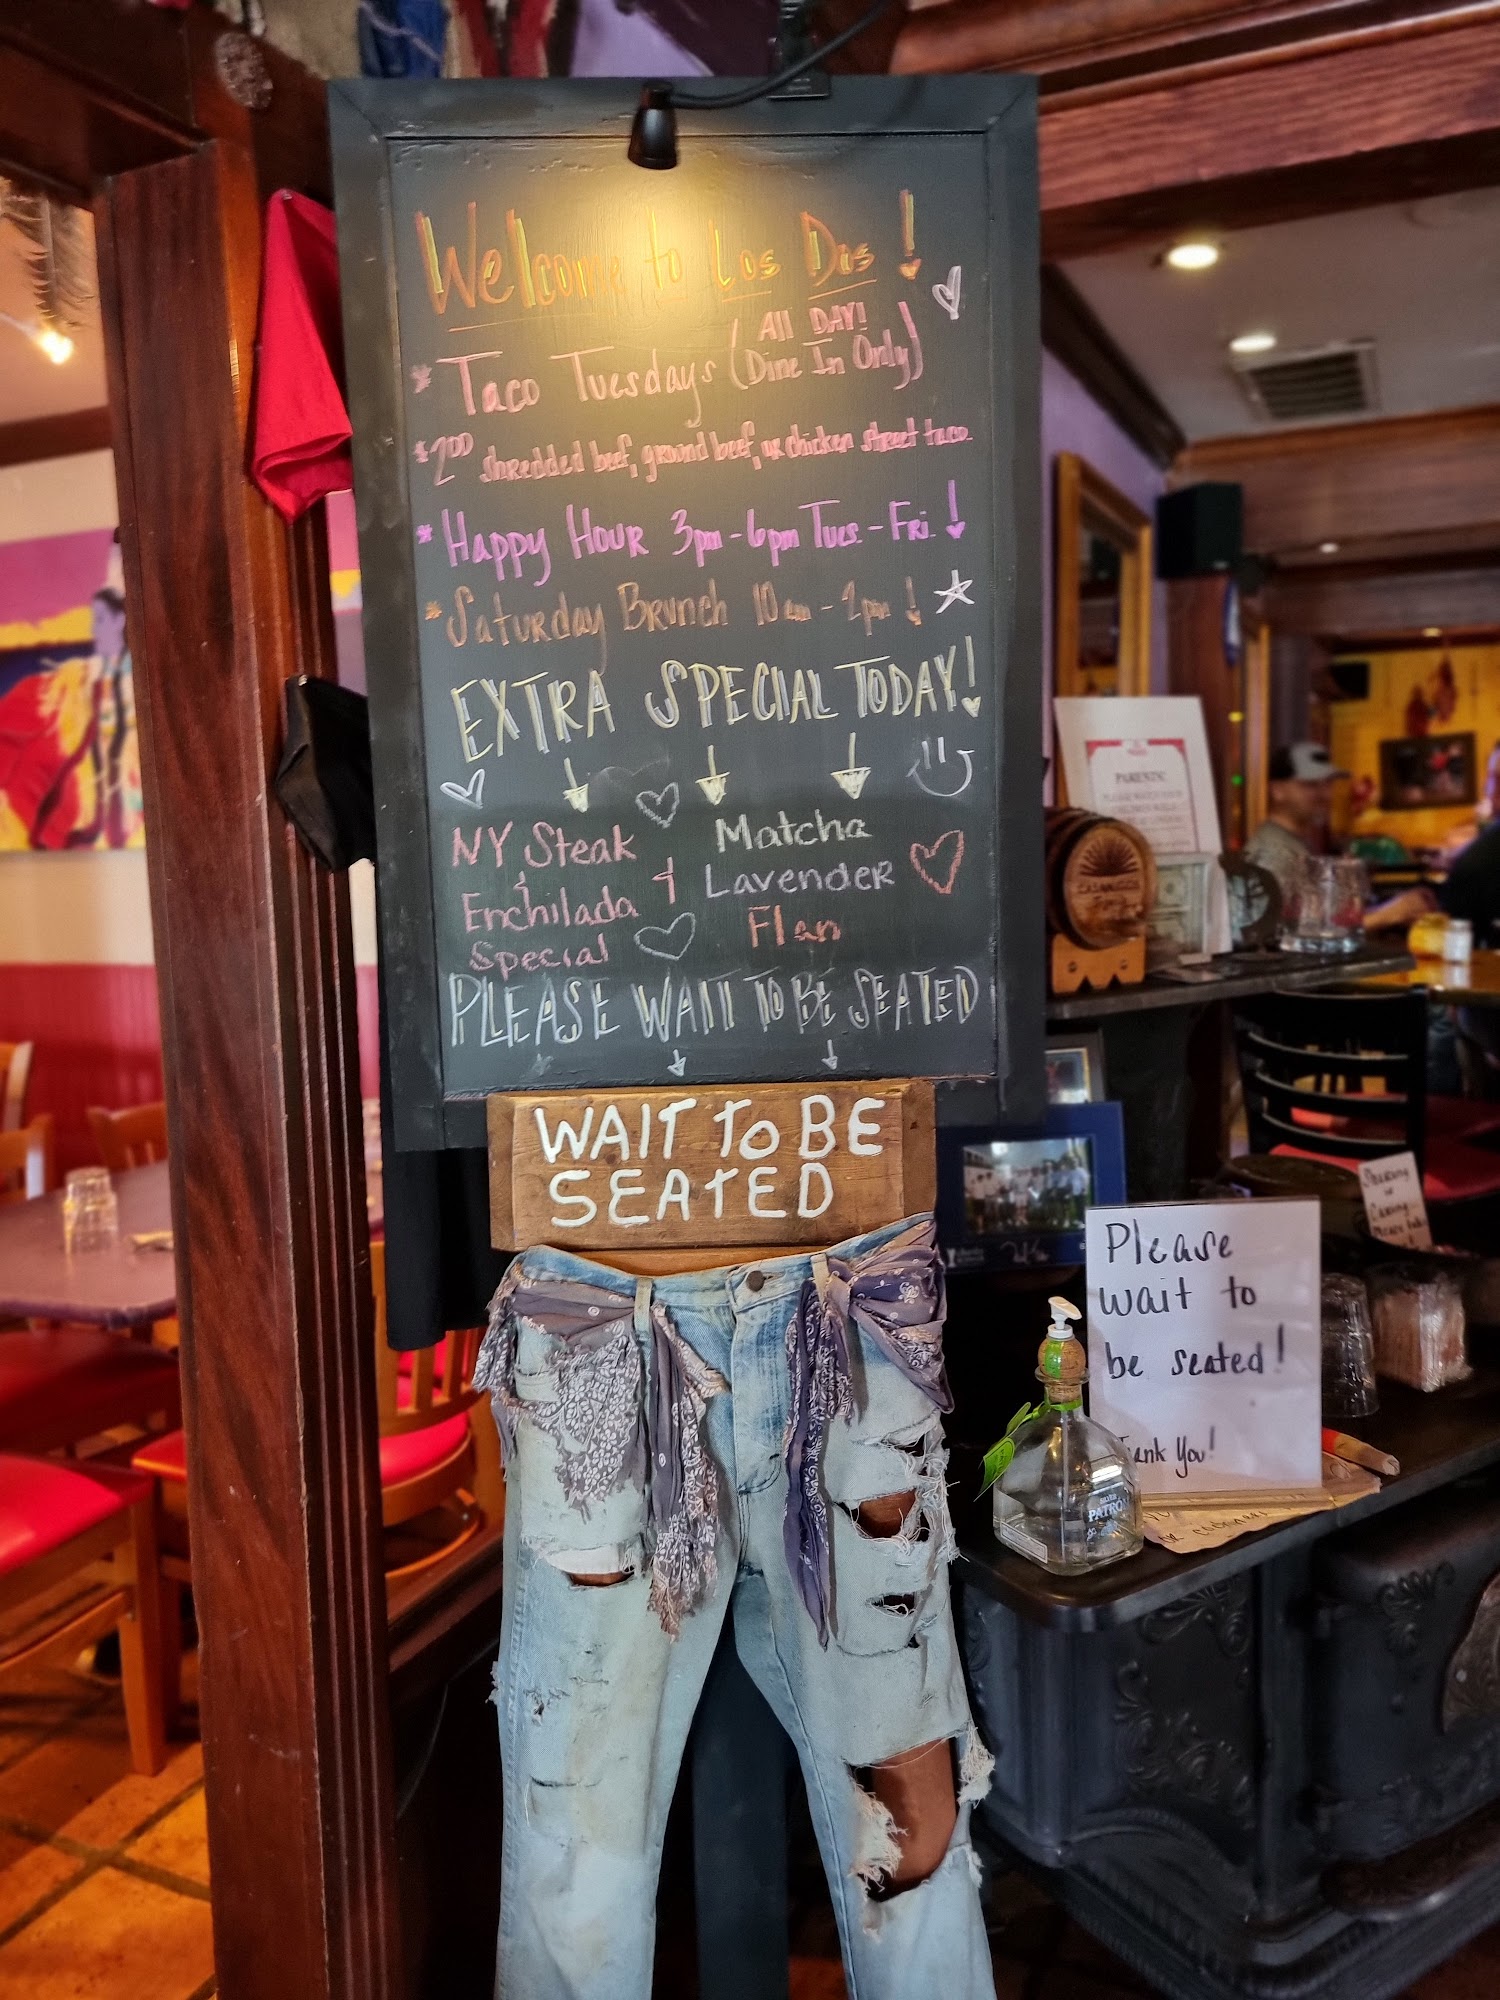 Welcome to Los Dos!
All DAY!
* Taco Tuesdays (Dine In Only)
$2.00 shredded beef, ground beef, or chicken street taco.
* Happy Hour 3pm-6pm Tues.-Fri.!
* Saturday Brunch 10am-2pm!
EXTRA SPECIAL TODAY!
NY Steak
&
Enchilada
Special
&
Matcha
Lavender
Flan
PLEASE WAIT TO BE SEATED
WAIT TO BE
SEATED
PARENTS!
Please
wait to
be seated!
Thank You!
PATRÓN